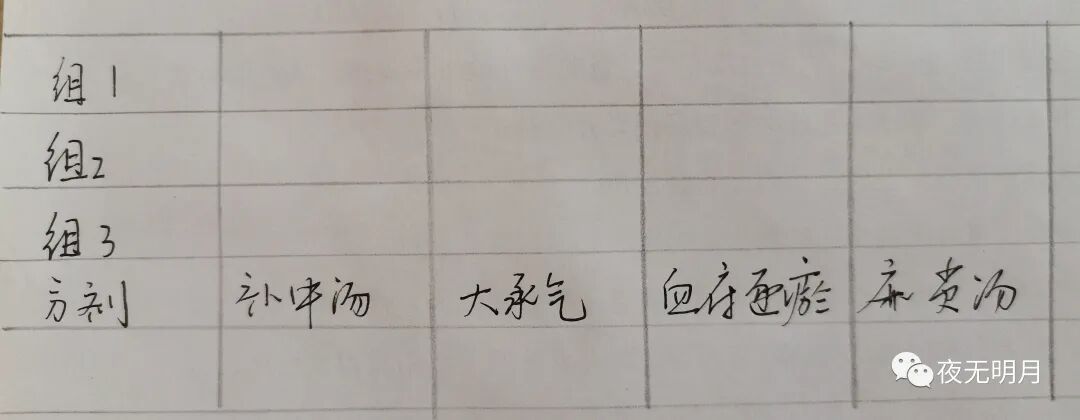 组1
组2
组3
方剂 补中汤 大承气 血府逐瘀 麻黄汤
夜无明月